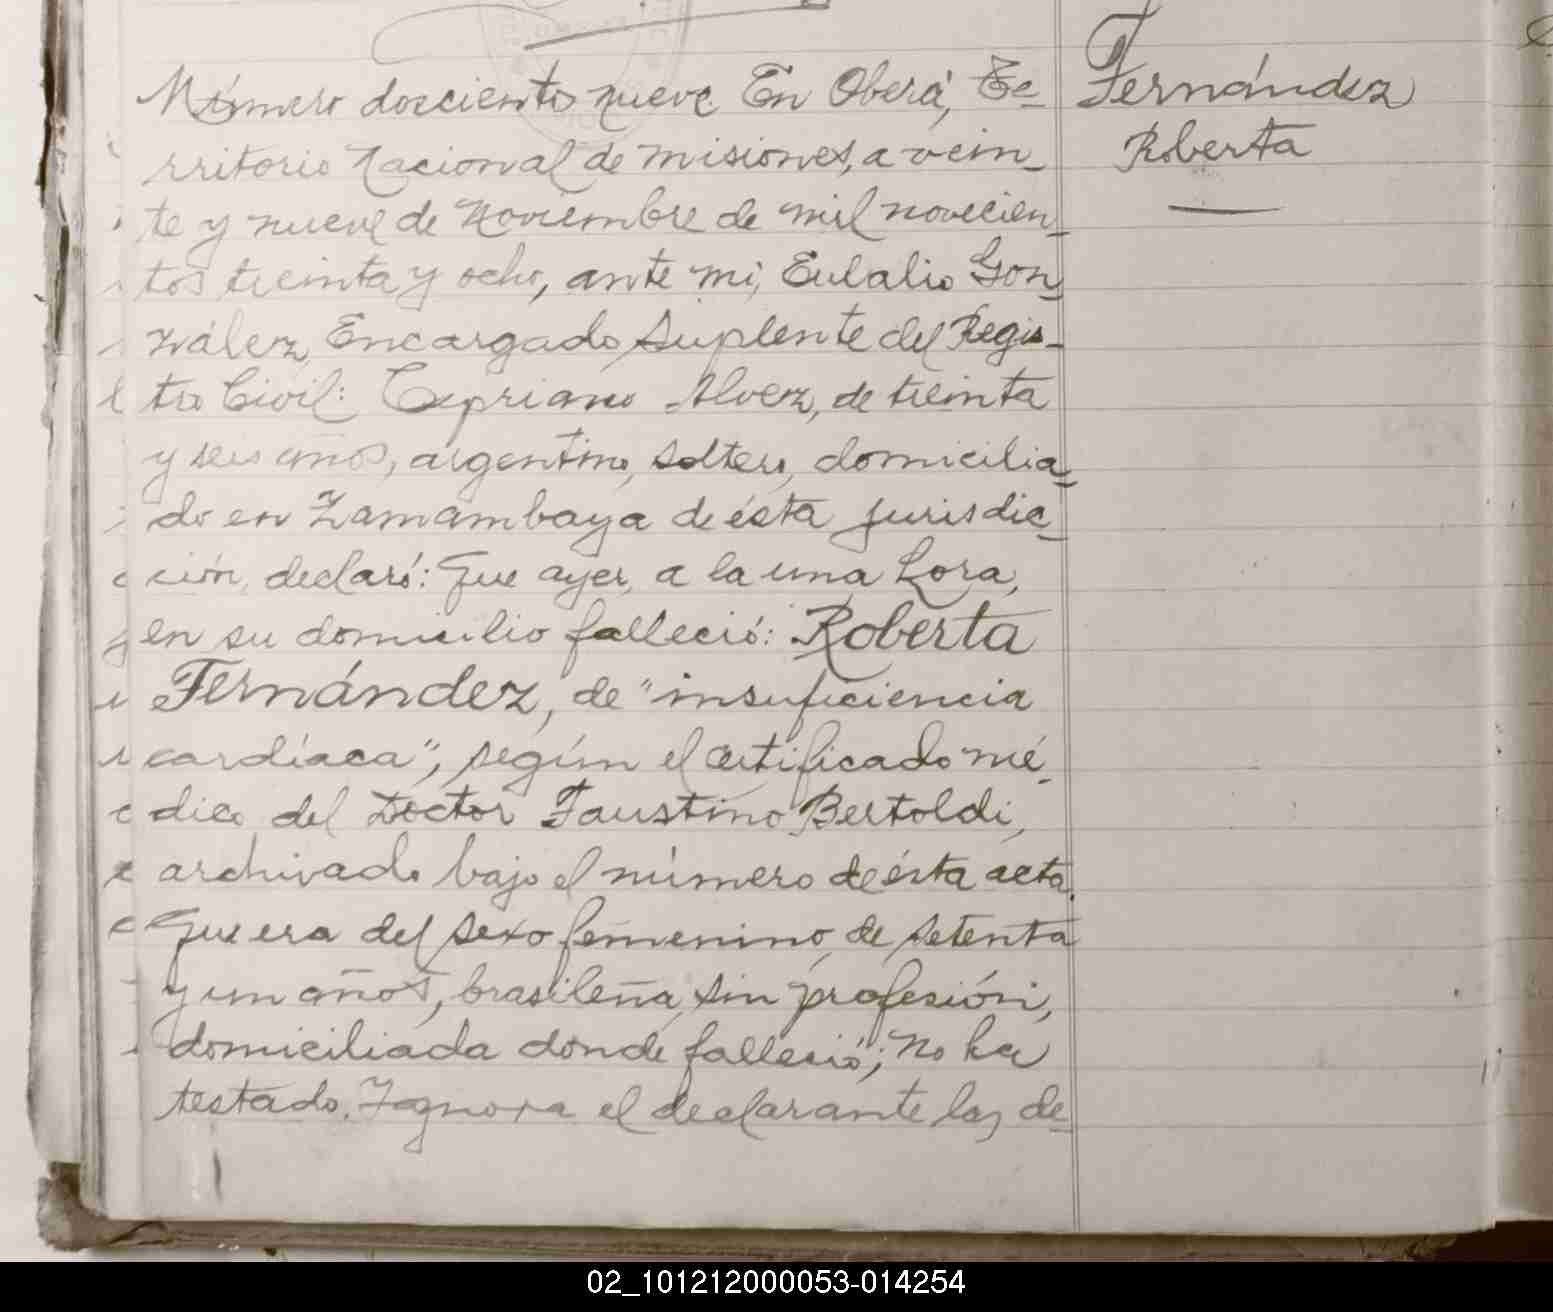 Número doscientos nueve. En Oberá, Te-
Fernández
rritorio Nacional de Misiones, a vein-
Roberta
te y nueve de Noviembre de mil novecien-
tos treinta y ocho, ante mi, Eulalio Gon-
zález, Encargado Suplente del Regis-
tro Civil: Cipriano Alvez, de treinta
y seis años, argentino, soltero, domicilia-
do en Zamambaya de ésta jurisdic-
ción, declaró: Que ayer, a la una hora,
en su domicilio falleció: Roberta
Fernández, de "insuficiencia
cardíaca", según el certificado mé-
dico del Doctor Faustino Bertoldi,
archivado bajo el número de ésta acta.
Que era del sexo femenino, de setenta
y un años, brasileña, sin profesión,
domiciliada donde falleció; No ha
testado. Ignora el declarante los de-
02_101212000053-014254